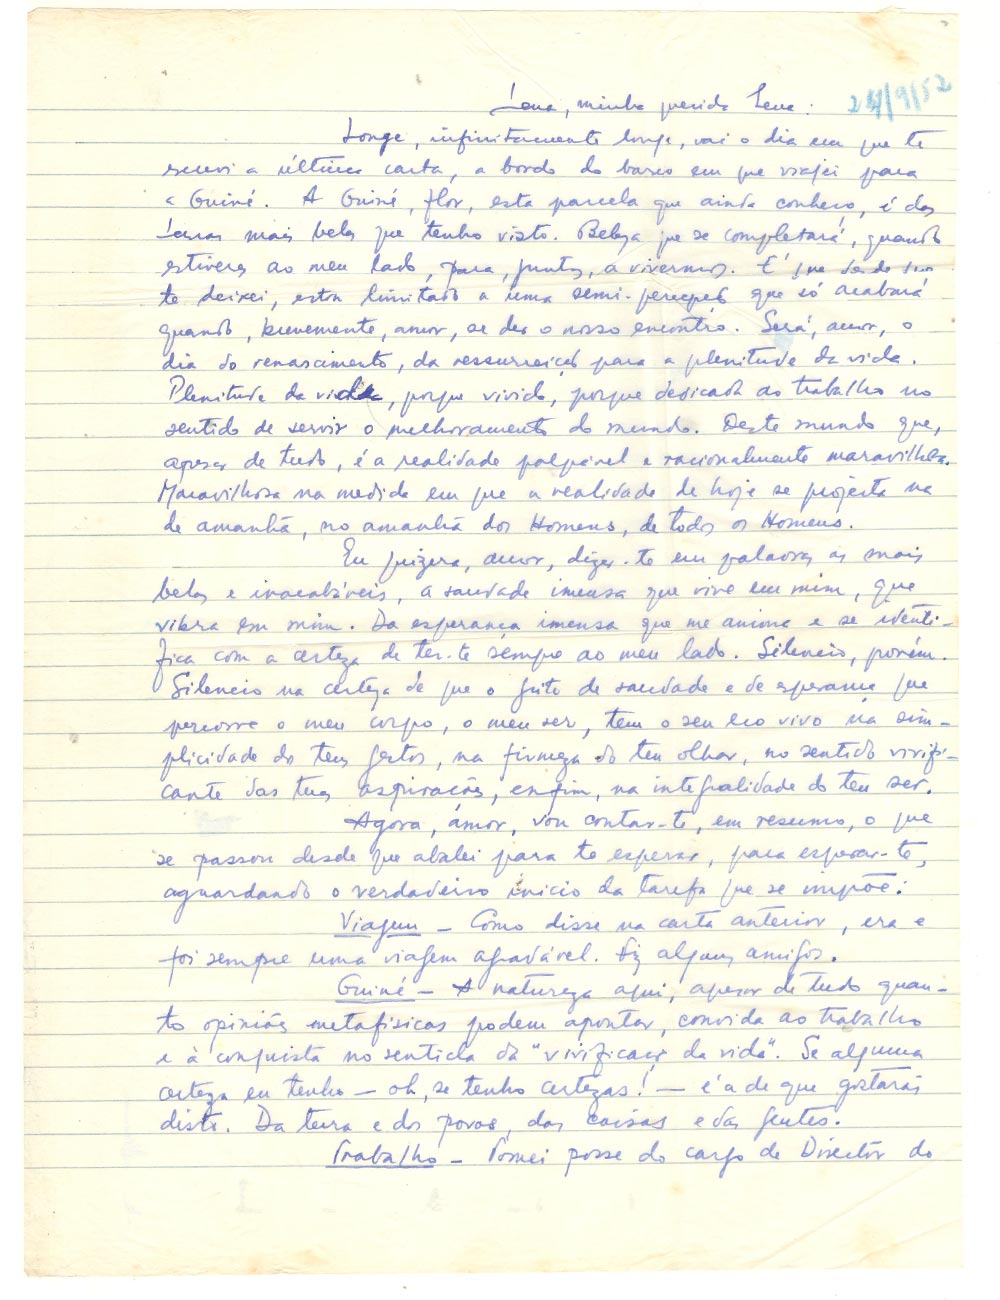 Lena, minha querida Lena: 24/9/52
Longe, infinitamente longe, vai o dia em que te
escrevi a última carta, a bordo do barco em que viajei para
a Guiné. A Guiné, flor, esta parcela que ainda conheço, é das
terras mais belas que tenho visto. Beleza que se completará, quando
estiveres ao meu lado, para, juntos, a vivermos. É que desde que
te deixei, estou limitado a uma semi-percepção que só acabará
quando, brevemente, amor, se der o nosso encontro. Será, amor, o
dia do renascimento, da ressurreição para a plenitude da vida.
Plenitude da vida, porque vivida, porque dedicada ao trabalho no
sentido de servir o melhoramento do mundo. Deste mundo que,
apesar de tudo, é a realidade palpável e racionalmente maravilhosa.
Maravilhosa na medida em que a realidade de hoje se projecta na
de amanhã, no amanhã dos Homens, de todos os Homens.
Eu quizera, amor, dizer-te em palavras as mais
belas e inacabáveis, a saudade imensa que vive em mim, que
vibra em mim. Da esperança imensa que me anima e se identi-
fica com a certeza de ter-te sempre ao meu lado. Silencio, porém.
Silencio na certeza de que o grito de saudade e de esperança que
percorre o meu corpo, o meu ser, tem o seu eco vivo na sim-
plicidade dos teus gestos, na firmeza do teu olhar, no sentido vivifi-
cante das tuas aspirações, enfim, na integralidade do teu ser.
Agora, amor, vou contar-te, em resumo, o que
se passou desde que abalei para te esperar, para esperar-te,
aguardando o verdadeiro início da tarefa que se impõe:
Viagem – Como disse na carta anterior, era e
foi sempre uma viagem agradável. Fiz alguns amigos.
Guiné – A natureza aqui, apesar de tudo quan-
to opiniões metafísicas podem apontar, convida ao trabalho
e à conquista no sentido da "vivificação da vida". Se alguma
certeza eu tenho – oh, se tenho certezas! – é a de que gostarás
disto. Da terra e dos povos, das coisas e das gentes.
Trabalho – Tomei posse do cargo de Director do